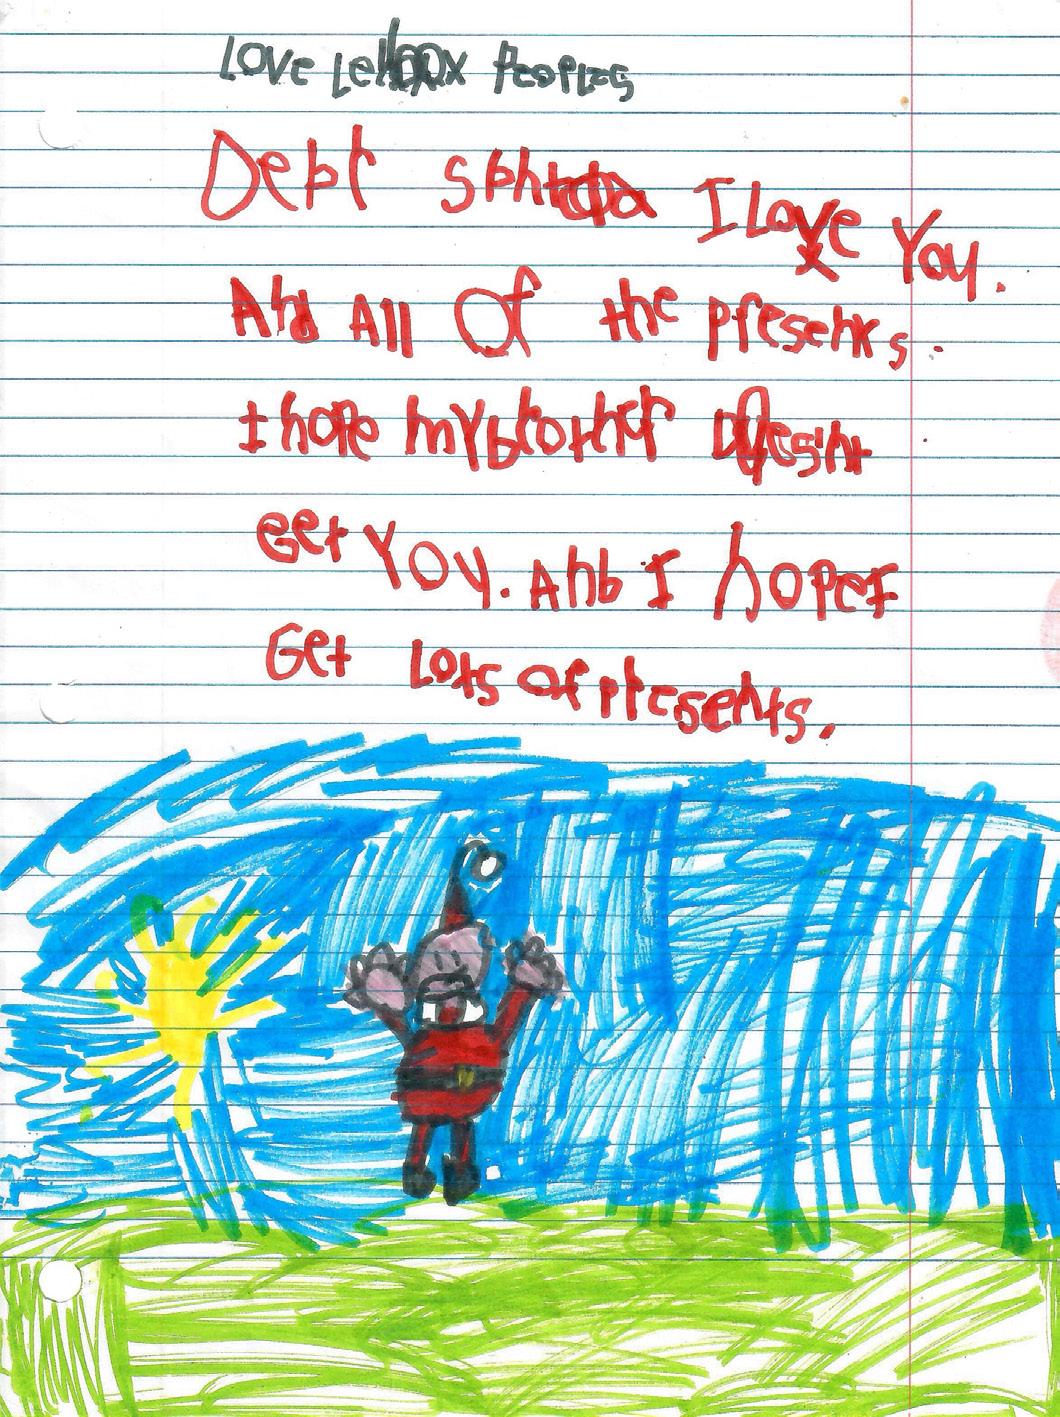 Love Lennox Peoples
Dear Santa I Love You.
And All Of the presents.
I hope my brother Doesint
Get YOU. And I hope I
Get Lots of presents.